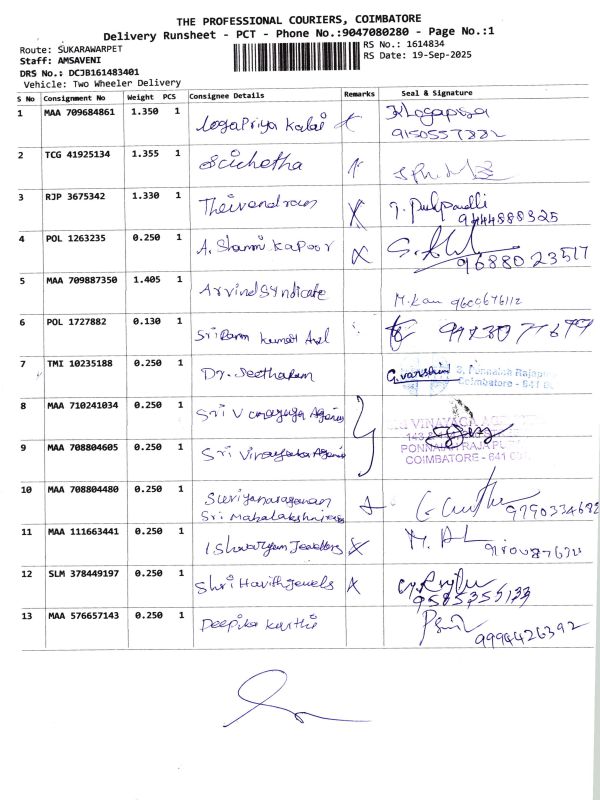 THE PROFESSIONAL COURIERS, COIMBATORE
Delivery Runsheet - PCT - Phone No.:9047080280 - Page No.:1
Route: SUKARAWARPET
RS No.: 1614834
Staff: AMSAVENI
RS Date: 19-Sep-2025
DRS No.: DCJB161483401
Vehicle: Two Wheeler Delivery
S No Consignment No Weight PCS Consignee Details Remarks Seal & Signature
1 MAA 709684861 1.350 1 LogaPriya Kalai
9150557882
2 TCG 41925134 1.355 1
3 RJP 3675342 1.330 1 Theivendram
9444888325
4 POL 1263235 0.250 1 A. Shammi Kapoor
9688023517
5 MAA 709887350 1.405 1 Arvind Syndicate
9600676112
6 POL 1727882 0.130 1 Sri Ram Kumar
7 TMI 10235188 0.250 1 Dr. Seetharam
Coimbatore - 641
8 MAA 710241034 0.250 1 Sri Vinayaga Agencies
VINAYAGA
9 MAA 708804605 0.250 1 Sri Vinayaka Agencies
PONNAIAH RAJA PURAM
COIMBATORE - 641
10 MAA 708804480 0.250 1 Suriyanarayanan
Sri Mahalakshmi
9790334682
11 MAA 111663441 0.250 1 Ishwaryam Jewellers
12 SLM 378449197 0.250 1 Shri Harith Jewels
9585355133
13 MAA 576657143 0.250 1 Deepika Karthi
9994426392